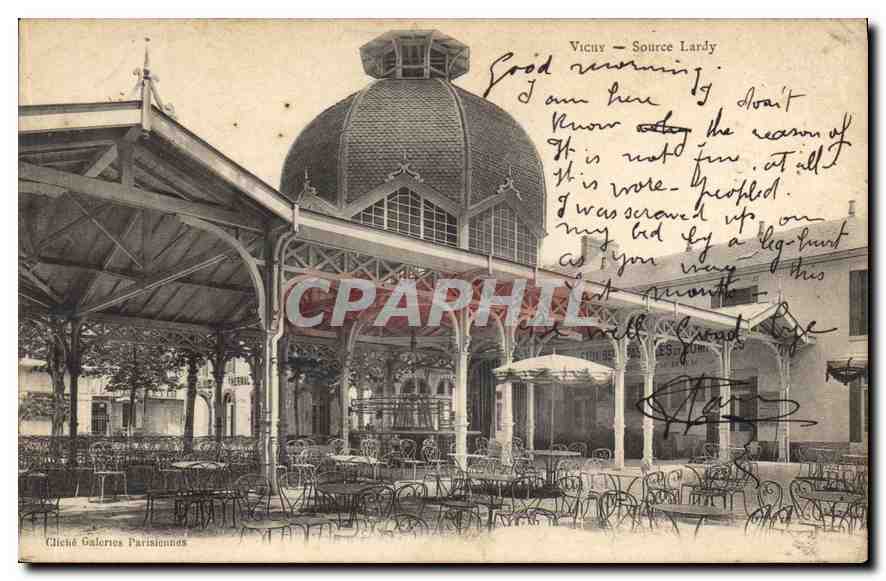 Vichy — Source Lardy
Good morning.
I am here I don't
Know why the reason of
It is not fun at all
It is more peopled.
I was screwed up on
my bed by a leg-hurt
as you were this
last month
well Good bye
CPAPHIL
Cliché Galeries Parisiennes